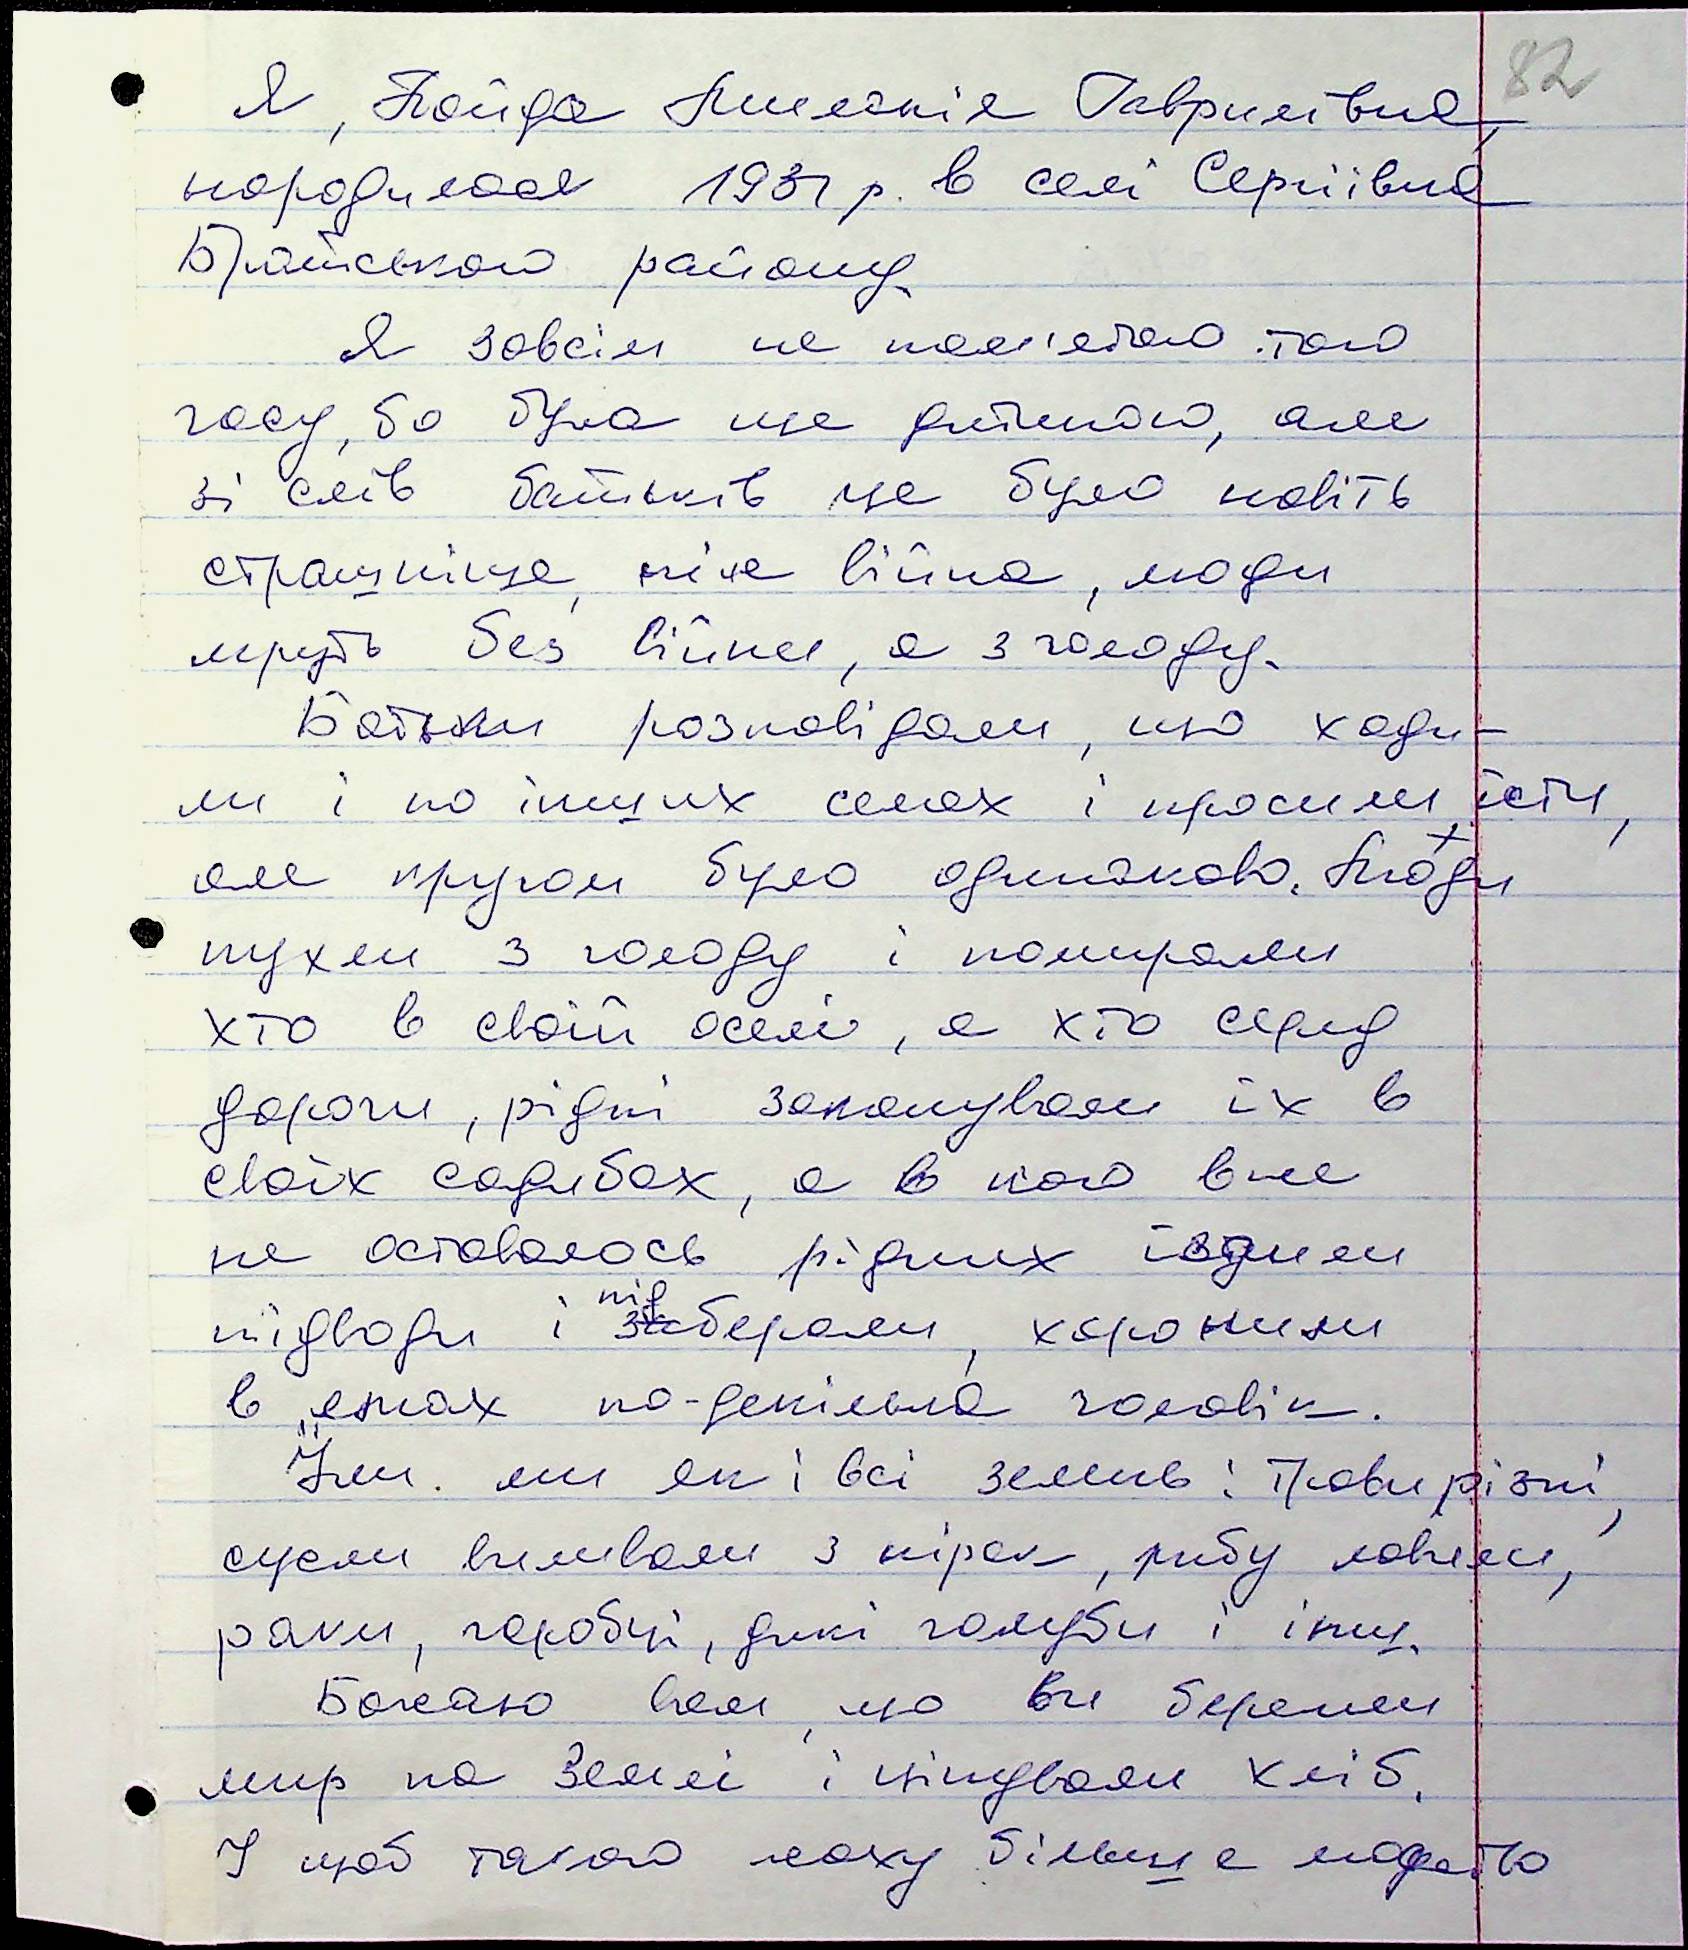 82
Я, Гавриливна,
народилася 1931 р. в селі Сергіївна
Братського району.
Я зовсім не пам'ятаю того
часу, бо була ще дитиною, але
зі слів батьків це було навіть
страшніше, ніж війна, люди
мруть без війни, а з голоду.
Батьки розповідали, що ходи-
ли і по інших селах і просили їсти,
але кругом було одинаково. Люди
пухли з голоду і помирали
хто в своїй оселі, а хто серед
дороги, рідні закопували їх в
своїх садибах, а в кого вже
не оставалось рідних їздили
підводи і підберали, хоронили
в "ямах по-декілька чоловік.
Їли ми як і всі земляв: трави різні,
сусли виливали з нірок, рибу ловили,
раки, горобці, дикі голуби і інш.
Бажаю вам, що ви берегли
мир на Землі і цінували хліб.
І щоб такого маху більше людство